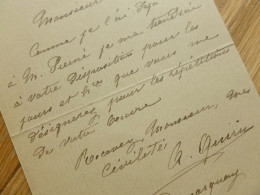 Monsieur
Comme je l'ai
à M. Pierné je me tiendrai
à votre disposition pour les
jours et h que vous me
désignerez pour les répétitions
de votre
Recevez, Monsieur, mes
civilités
A.